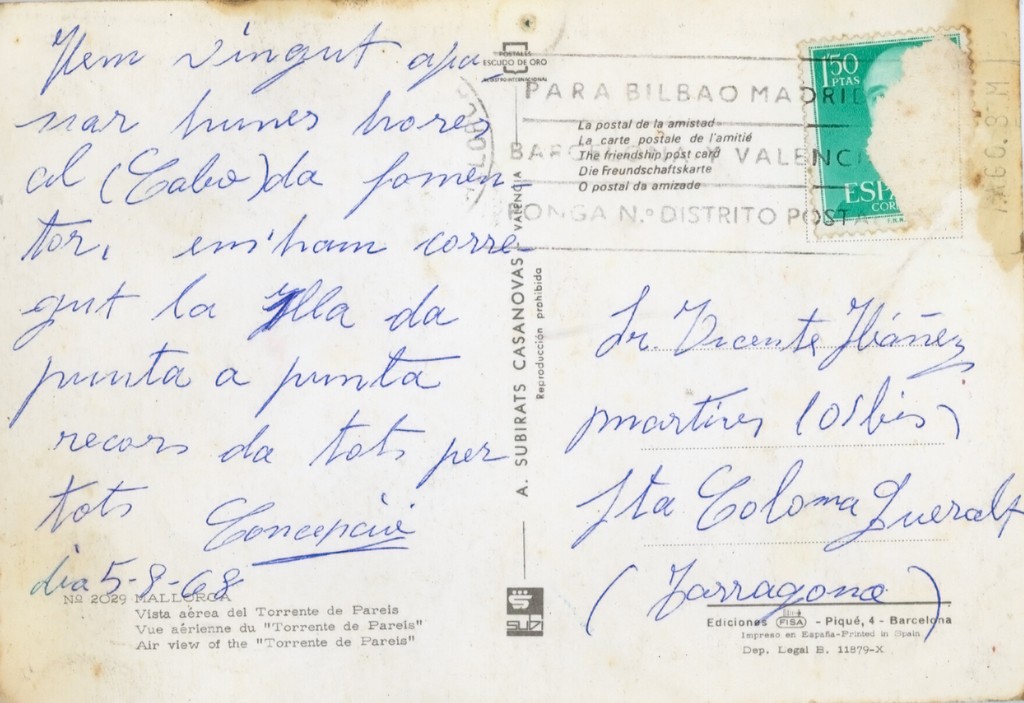 Hem vingut apa
sar hunes hores
al (Cabo) da fomen
tor, ens'ham corre
gut la Illa da
punta a punta
recors da tots per
tots
Concepció
dia 5-8-68
Nº 2029 MALLORCA
Vista aérea del Torrente de Pareis
Vue aérienne du "Torrente de Pareis"
Air view of the "Torrente de Pareis"
POSTALES
ESCUDO DE ORO
A. SUBIRATS CASANOVAS - VALENCIA
Reproducción prohibida
SUBI
La postal de la amistad
La carte postale de l'amitié
The friendship post card
Die Freundschaftskarte
O postal da amizade
PARA BILBAO MADRID
VALENCI
PONGA N.º DISTRITO POSTA
AGO. 8 M
1'50
PTAS
ESPA
COR
Sr. Vicente Ibáñez
martires (os bis)
Sta Coloma Queralt
(Tarragona)
Ediciones FISA - Piqué, 4 - Barcelona
Impreso en España-Printed in Spain
Dep. Legal B. 11879-X